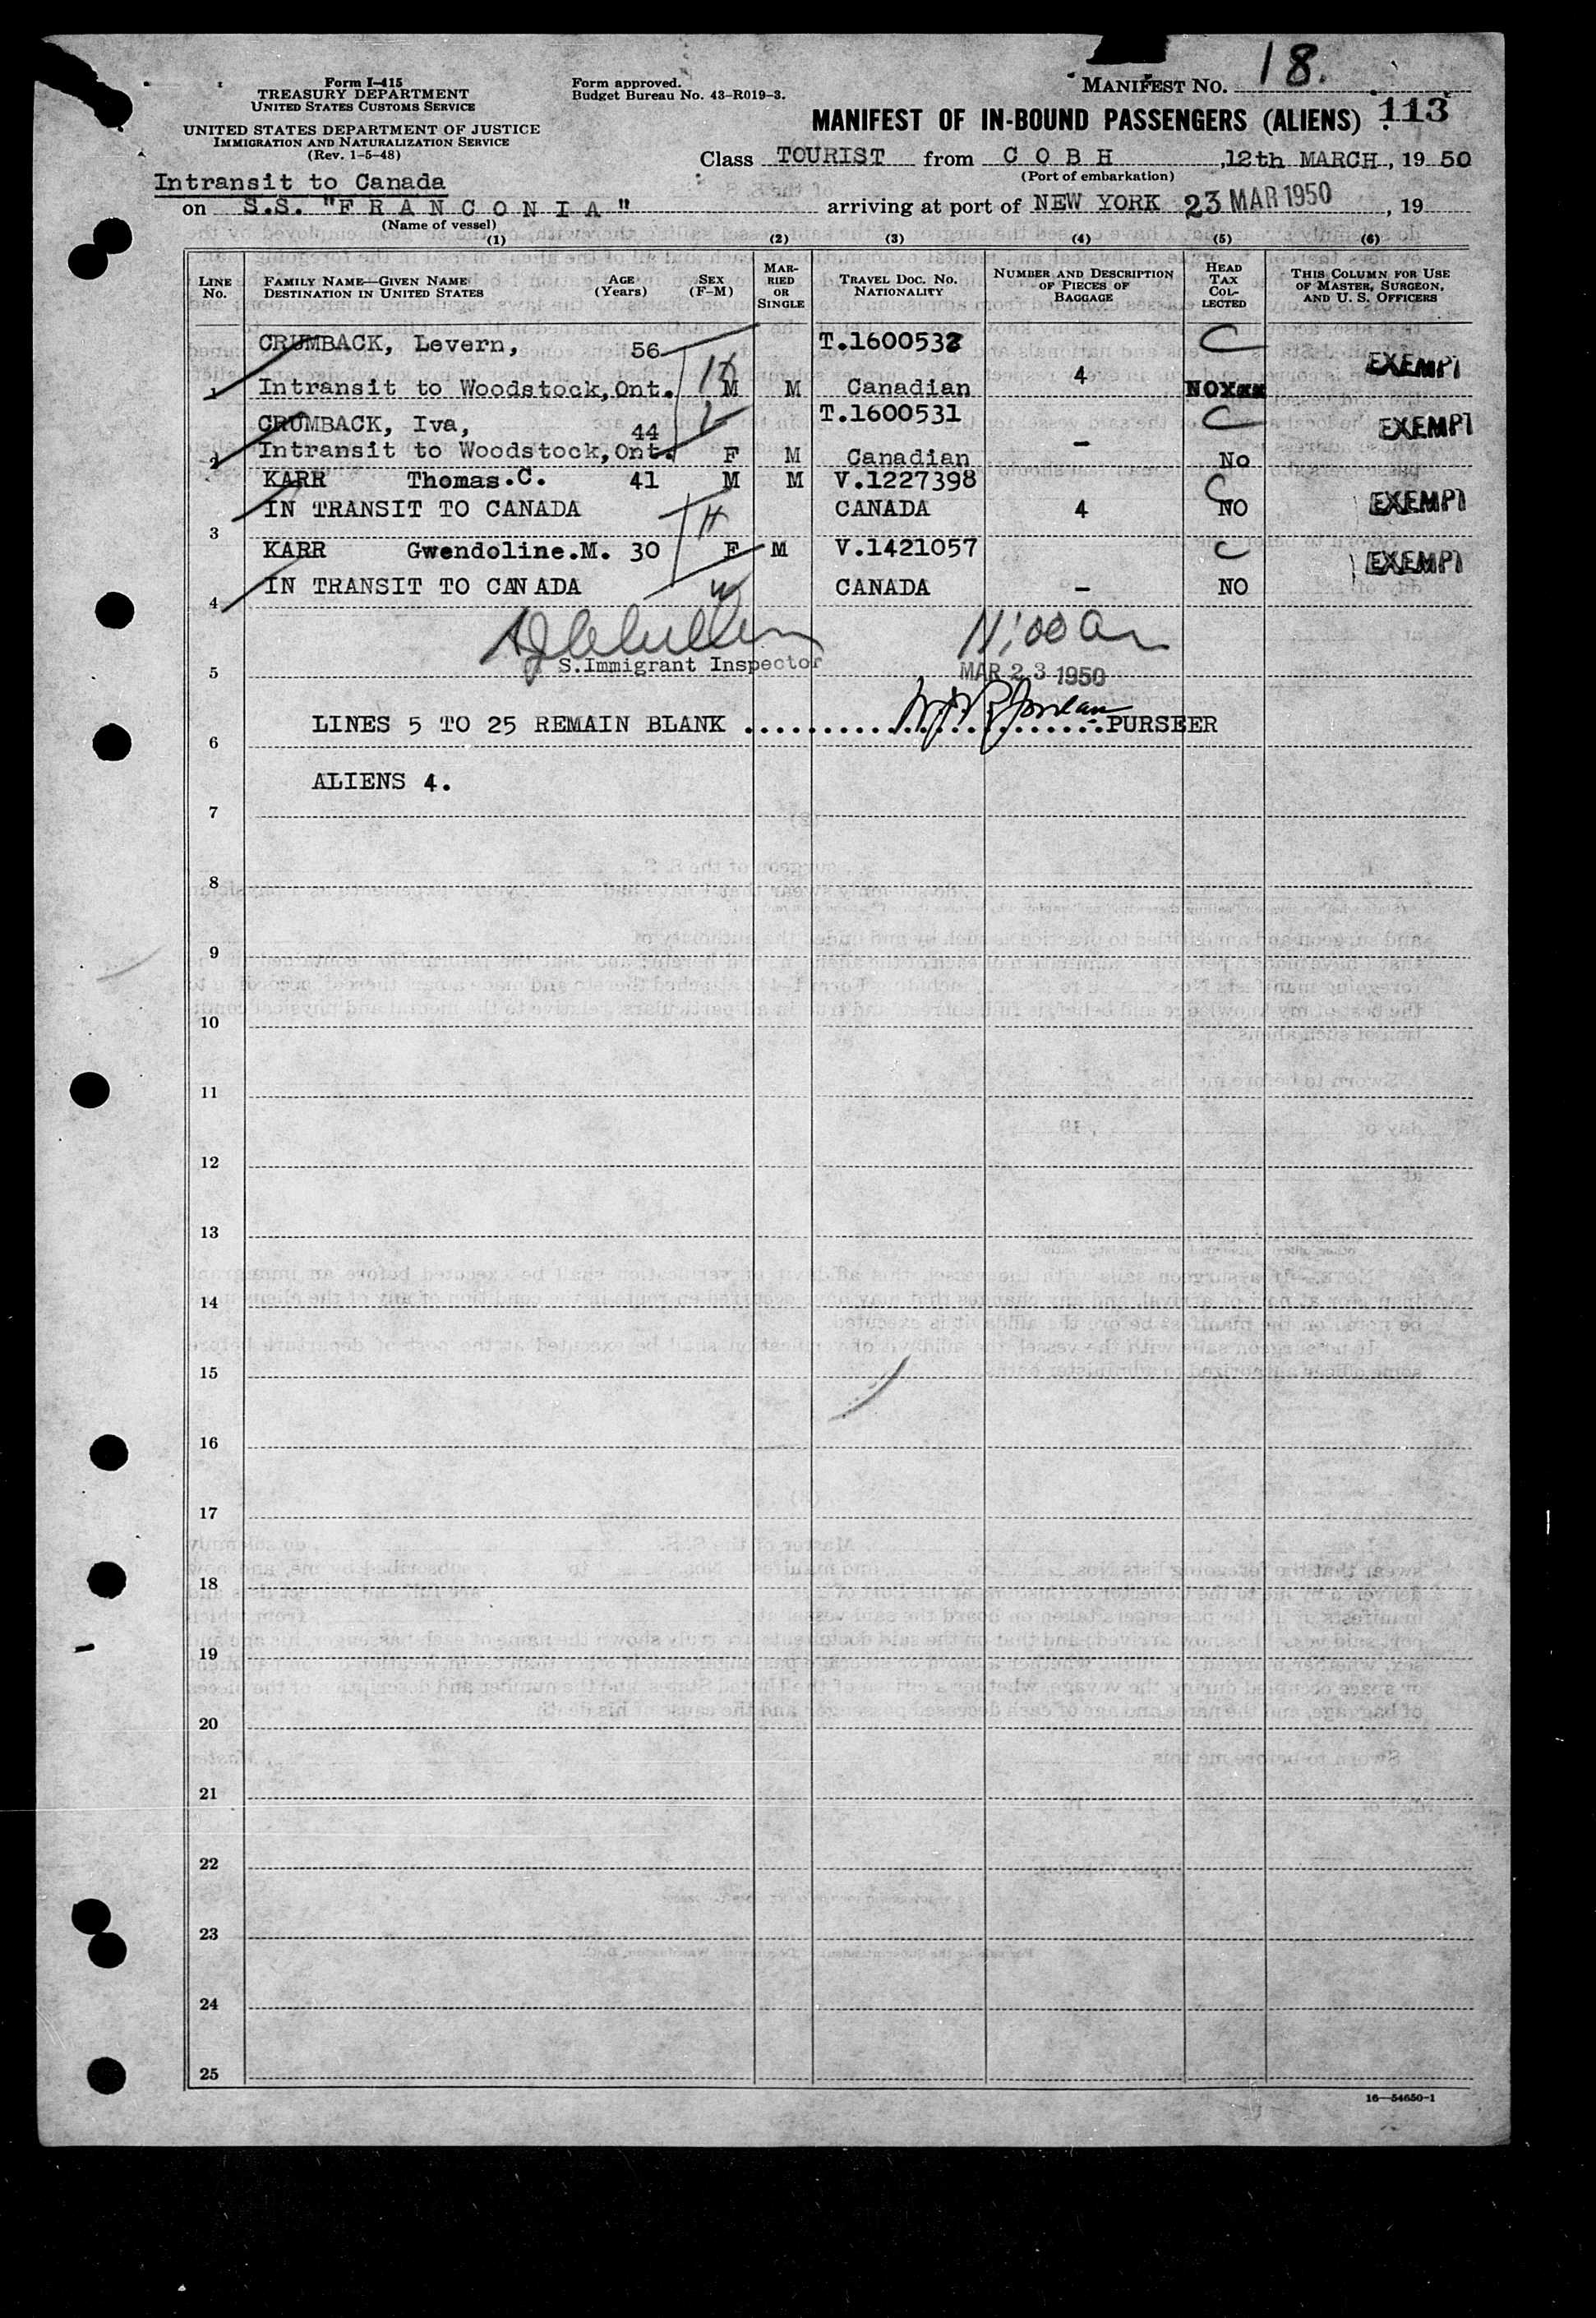 Form I-415
TREASURY DEPARTMENT
UNITED STATES CUSTOMS SERVICE
UNITED STATES DEPARTMENT OF JUSTICE
IMMIGRATION AND NATURALIZATION SERVICE
(Rev. 1-5-48)
Form approved.
Budget Bureau No. 43-R019-3.
MANIFEST NO. 18.
MANIFEST OF IN-BOUND PASSENGERS (ALIENS) 113
Class TOURIST from C O B H, 12th MARCH, 19 50
(Port of embarkation)
Intransit to Canada
on S.S. "F R A N C O N I A" arriving at port of NEW YORK 23 MAR 1950, 19
(Name of vessel)
(1) (2) (3) (4) (5) (6)
LINE No. FAMILY NAME—GIVEN NAME DESTINATION IN UNITED STATES AGE (Years) SEX (F-M) MARRIED OR SINGLE TRAVEL DOC. NO. NATIONALITY NUMBER AND DESCRIPTION OF PIECES OF BAGGAGE HEAD TAX COLLECTED THIS COLUMN FOR USE OF MASTER, SURGEON, AND U. S. OFFICERS
CRUMBACK, Levern, 56 T.1600532 C EXEMPT
1 Intransit to Woodstock, Ont. M M Canadian 4 NOXxx
CRUMBACK, Iva, 44 T.1600531 C EXEMPT
2 Intransit to Woodstock, Ont. F M Canadian – No
KARR Thomas.C. 41 M M V.1227398 C
3 IN TRANSIT TO CANADA CANADA 4 NO EXEMPT
KARR Gwendoline.M. 30 F M V.1421057 C EXEMPT
4 IN TRANSIT TO CANADA CANADA – NO
S.Immigrant Inspector
5 MAR 23 1950
LINES 5 TO 25 REMAIN BLANK ........................PURSEER
6
ALIENS 4.
7
8
9
10
11
12
13
14
15
16
17
18
19
20
21
22
23
24
25
16—54650-1